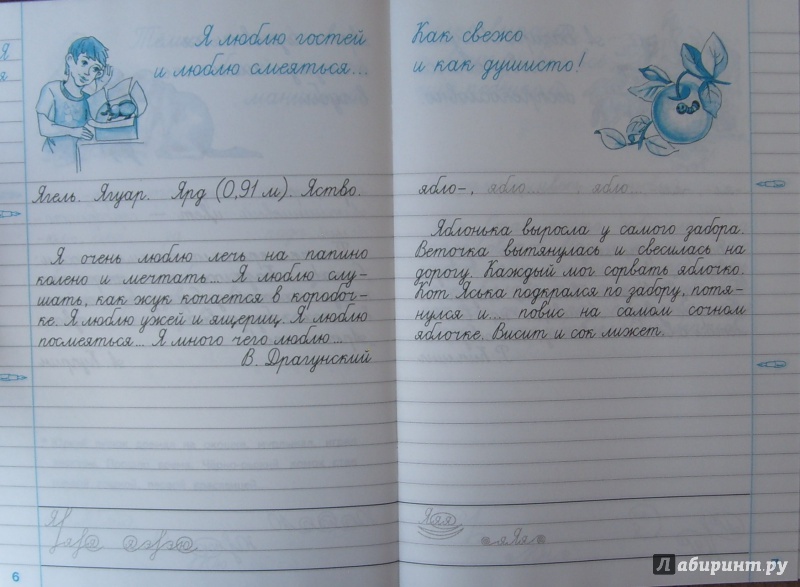 Я люблю гостей
и люблю смеяться...
Ягель. Ягуар. Ярд (0,91 м). Яство.
Я очень люблю лечь на папино
колено и мечтать... Я люблю слу-
шать, как жук копается в коробоч-
ке. Я люблю ужей и ящериц. Я люблю
посмеяться... Я много чего люблю...
В. Драгунский
Я
6
Как свежо
и как душисто!
ябло-, ябло... ябло...
Яблонька выросла у самого забора.
Веточка вытянулась и свесилась на
дорогу. Каждый мог сорвать яблочко.
Кот Яська подкрался по забору, потя-
нулся и... повис на самом сочном
яблочке. Висит и сок лижет.
Яяя
Лабиринт.ру